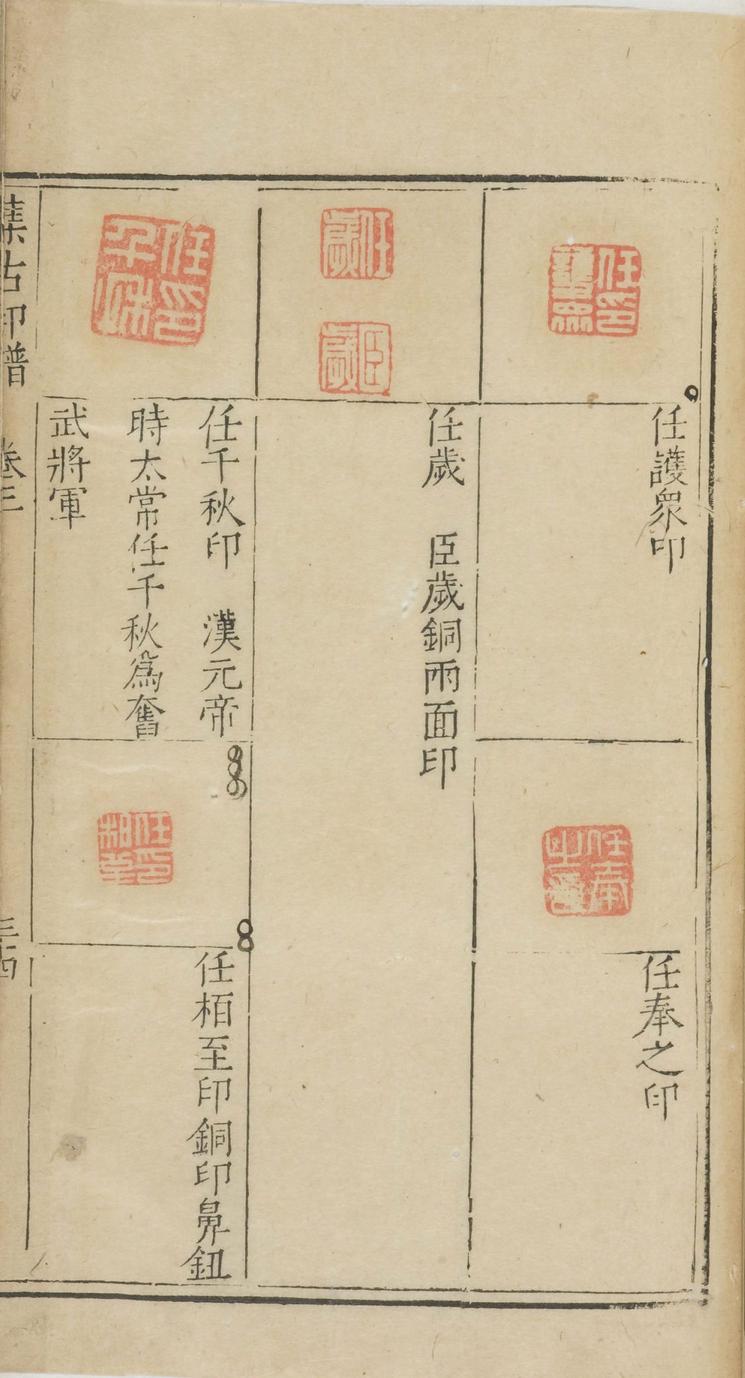 任護衆印
任奉之印
任歲　臣歲銅兩面印
任千秋印　漢元帝
時太常任千秋爲奮
武將軍
任栢至印銅印鼻鈕
集古印譜　卷三　三四